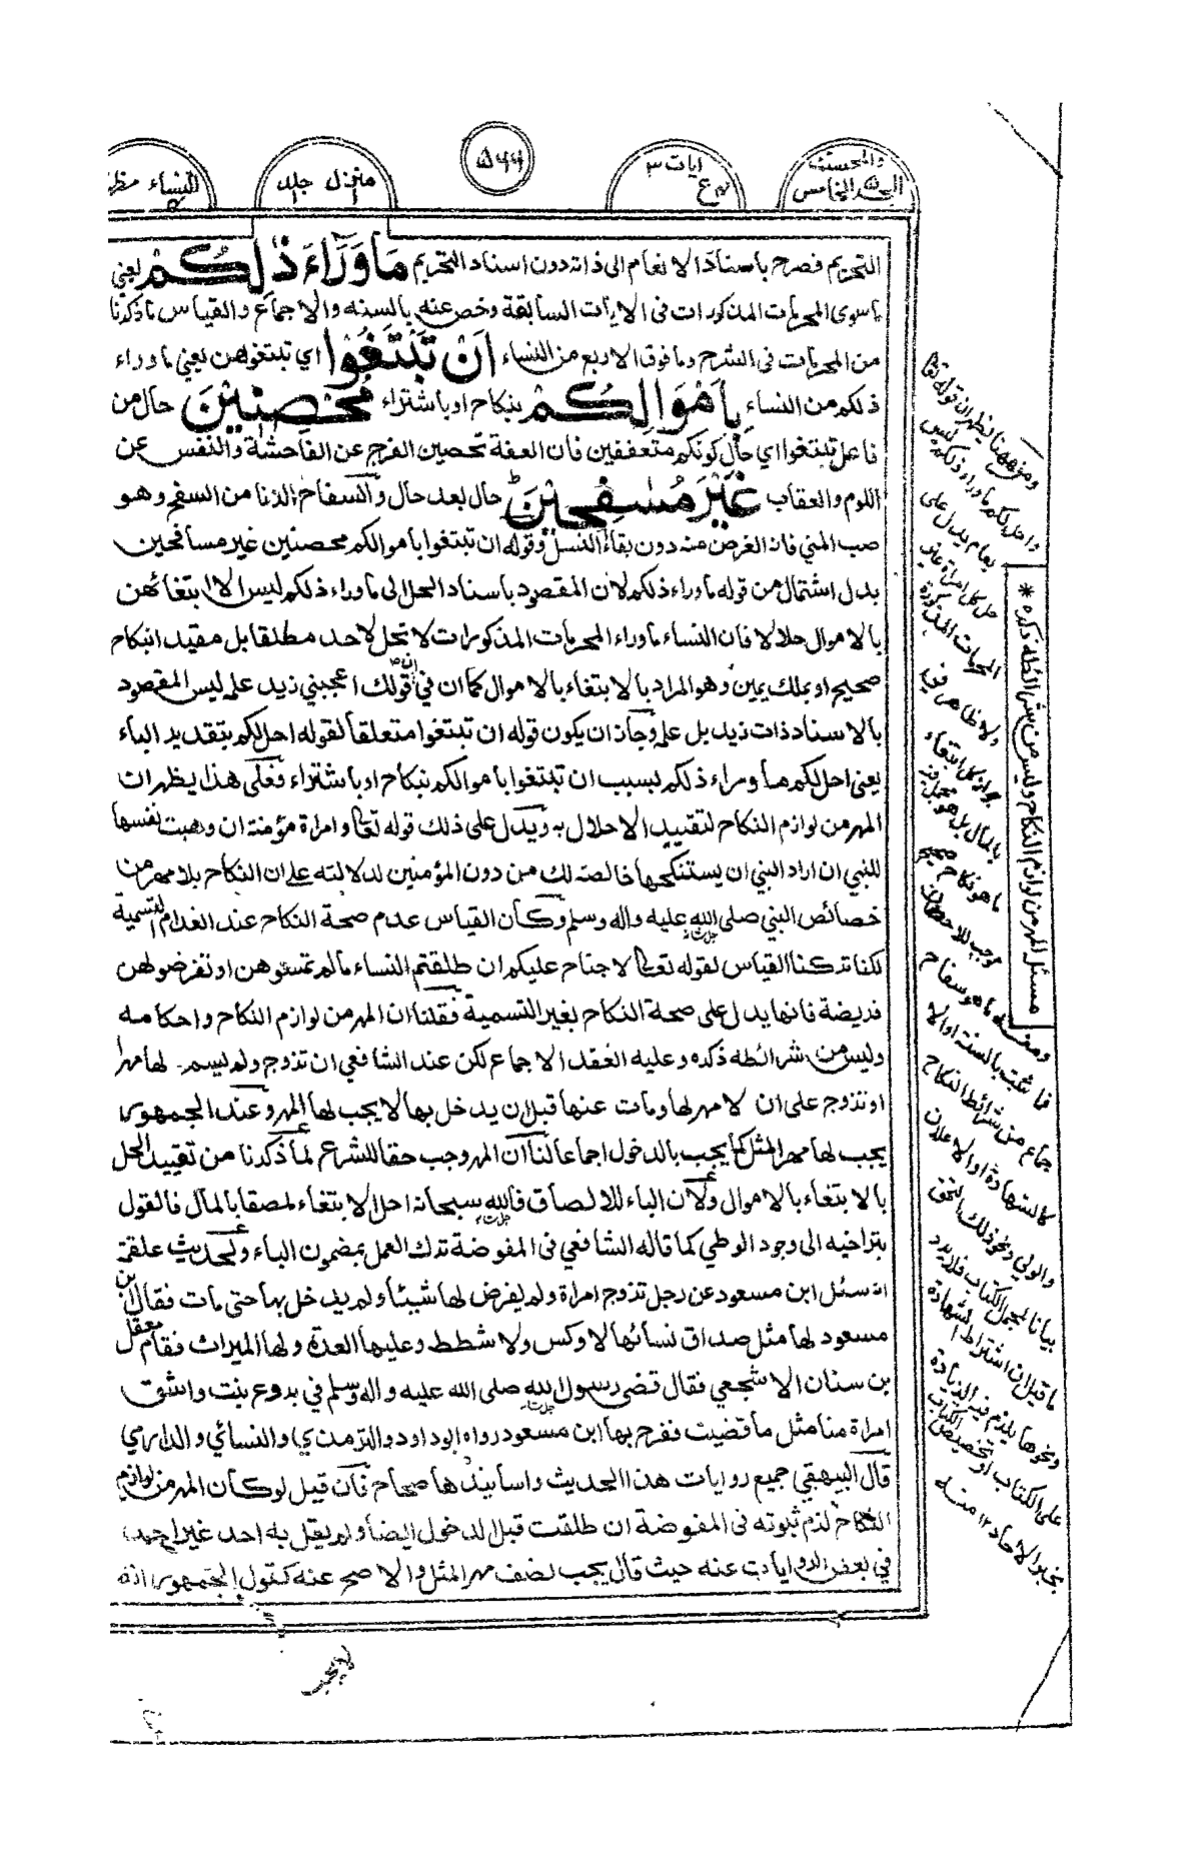 والمحصنت
الجزء الخامس
ايات ٣
ع
٥٦٦
منزل جلد
النساء
التحريم فصرح باسناد الانعام الى ذاته دون اسناد التحريم مَا وَرَآءَ ذٰلِكُمْ يعني
ما سوى المحرمات المذكورات فى الايات السابقة وخص عنه بالسنه والاجماع والقياس ما ذكرنا
من المحرمات فى الشرح وما فوق الاربع من النساء اَنْ تَبْتَغُوْا اي تبتغوهن يعني ما وراء
ذلكم من النساء بِاَمْوَالِكُمْ بنكاح او باشتراء مُّحْصِنِيْنَ حال من
فاعل تبتغوا اي حال كونكم متعففين فان العفة تحصين الفرج عن الفاحشة والنفس عن
اللوم والعقاب غَيْرَ مُسٰفِحِيْنَ حال بعد حال والسفاح الزنا من السفح وهو
صب المني فانه الغرض منه دون بقاء النسل وقوله ان تبتغوا باموالكم محصنين غير مسافحين
بدل اشتمال من قوله ما وراء ذلكم لان المقصود باسناد الحل الى ما وراء ذلكم ليس الا ابتغائهن
بالاموال حلالا فان النساء ما وراء المحرمات المذكورات لا تحل لاحد مطلقا بل مقيد ابنكاح
صحيح او بملك يمين وهو المراد بالابتغاء بالاموال كما ان في قولك اعجبني زيد علمه ليس المقصود
بالاسناد ذات زيد بل علمه وجاز ان يكون قوله ان تبتغوا متعلقا لقوله احل لكم بتقدير الباء
يعني احل لكم ما وراء ذلكم بسبب ان تبتغوا باموالكم بنكاح او باشتراء فعلى هذا يظهر ان
المهر من لوازم النكاح لتقييد الاحلال به ويدل على ذلك قوله تعالى وامراة مؤمنة ان وهبت نفسها
للنبي ان اراد النبي ان يستنكحها خالصة لك من دون المؤمنين لدلالته على ان النكاح بلا مهر من
خصائص النبي صلى الله عليه واله وسلم وكان القياس عدم صحة النكاح عند انعدام التسمية
لكنا تركنا القياس لقوله تعالى لا جناح عليكم ان طلقتم النساء ما لم تمسوهن او تفرضوا لهن
فريضة فانها يدل على صحة النكاح بغير التسمية فقلنا ان المهر من لوازم النكاح واحكامه
وليس من شرائطه ذكره وعليه انعقد الاجماع لكن عند الشافعي ان تزوج ولم يسم لها مهرا
او تزوج على ان لا مهر لها ومات عنها قبل ان يدخل بها لا يجب لها المهر وعند الجمهور
يجب لها مهر المثل كما يجب بالدخول اجماعا لنا ان المهر وجب حقا للشرع لما ذكرنا من تقييد الحل
بالابتغاء بالاموال ولان الباء للالصاق فالله سبحانه احل الابتغاء لمصقا بالمال فالقول
بتراخيه الى وجود الوطي كما قاله الشافعي فى المفوضة ترك العمل بمضمون الباء ولحديث علقمة
انه سئل ابن مسعود عن رجل تزوج امراة ولم يفرض لها شيئا ولم يدخل بها حتى مات فقال ابن
مسعود لها مثل صداق نسائها لا وكس ولا شطط وعليها العدة ولها الميراث فقام معقل
بن سنان الاشجعي فقال قضى رسول الله صلى الله عليه واله وسلم في بروع بنت واشق
امراة منا مثل ما قضيت ففرح بها ابن مسعود رواه ابوداود والترمذي والنسائي والدارمي
قال البيهقي جميع روايات هذا الحديث واسانيدها صحاح فان قيل لو كان المهر من لوازم
النكاح لزم ثبوته فى المفوضة ان طلقت قبل الدخول ايضا ولم يقل به احد غير احمد
في بعض الروايات عنه حيث قال يجب نصف مهر المثل والاصح عنه كقول الجمهور انه
لا يجب
مسئلة المهر من لوازم النكاح وليس من شرائطه ذكره *
ومن ههنا يظهر ان قوله تعالى
واحل لكم ما وراء ذلكم ليس
بعام يدل على
حل كل امراة غير
المحرمات المذكورة
ولا ظاهر في
جواز كل ابتغاء
بالمال بل هو مجمل
ما هو نكاح صحيح
موجب للاحصان
ومنه ما هو سفاح
فما ثبت بالسنة او الا
جماع من شرائط النكاح
كالشهادة او الاعلان
والولي ونحو ذلك التحق
بيانا لمجمل الكتاب فلا يرد
ما قيل ان اشتراط الشهادة
ونحوها يلزم منه الزيادة
على الكتاب او تخصيص الكتاب
بخبر الاحاد ١٢ منه